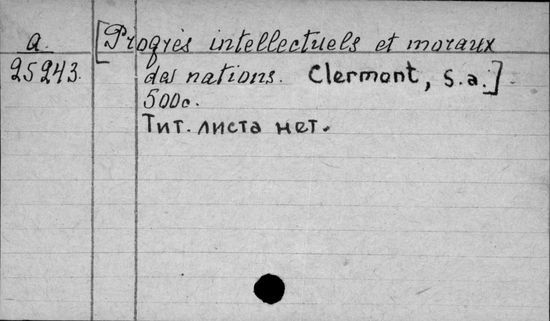 a. [Progrès intellectuels et moraux
25243. des nations. Clermont, s.a.].
500c.
Тит. листа нет.